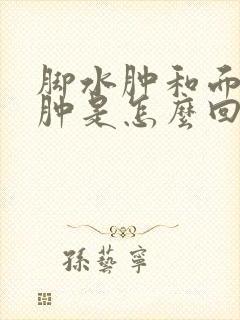 脚水肿和面
肿是怎麼回
孫藝寧